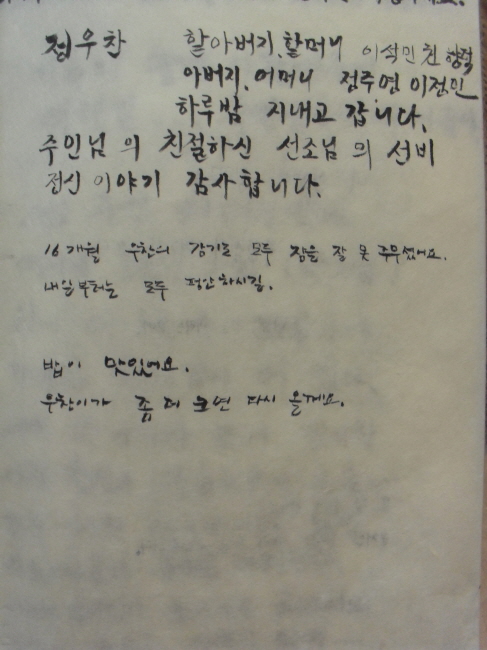 정우찬 할아버지, 할머니 이석민
아버지, 어머니 정주영 이정민
하루밤 지내고 갑니다.
주인님의 친절하신 선조님의 선비
정신 이야기 감사합니다.
16개월 우찬의 감기로 모두 잠을 잘 못 주무셨어요.
내일부터는 모두 평안하시길.
밥이 맛있어요.
우찬이가 좀 더 크면 다시 올게요.